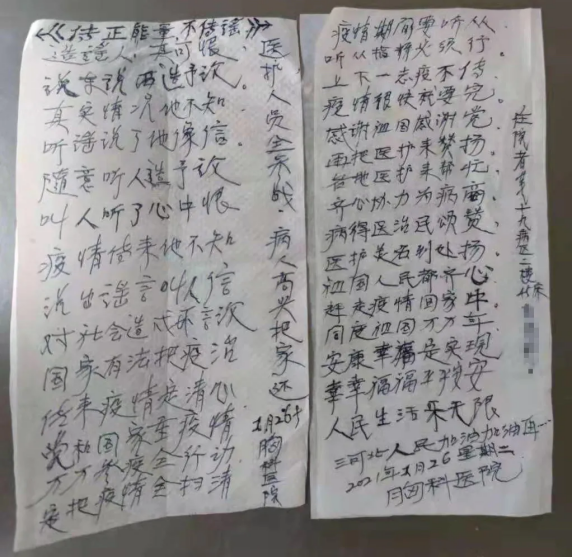 《传正能量,不传谣》
造谣人,真可恨,
说东说西造予次
真实情况他不知
听谣说了他像信
随意听人谣予次
叫人听了心中恨
疫情传来他不知
说出谣言叫人信
对社会造成不言次
国家有法把疫治
传来疫情定清心
党和国家重疫情
万万参疫全行功
定把疫情全扫清
医护人员全参战,病人高兴把家还
1月26号
胸科医院
疫情期间要听从
听从指挥必须行
上下一志疫不传
疫情很快就要完
感谢祖国感谢党
再把医护来赞扬
各地医护来帮忙
齐心协力为病商
病得医治民颂赞
医护美名到处扬
祖国人民都齐心
赶走疫情回家中
同度祖国万万年
安康幸福是实现
幸幸福福平平安安
人民生活乐无限
河北人民加油加油再
2021年1月26星期二
胸科医院
住院者
病区二楼
床